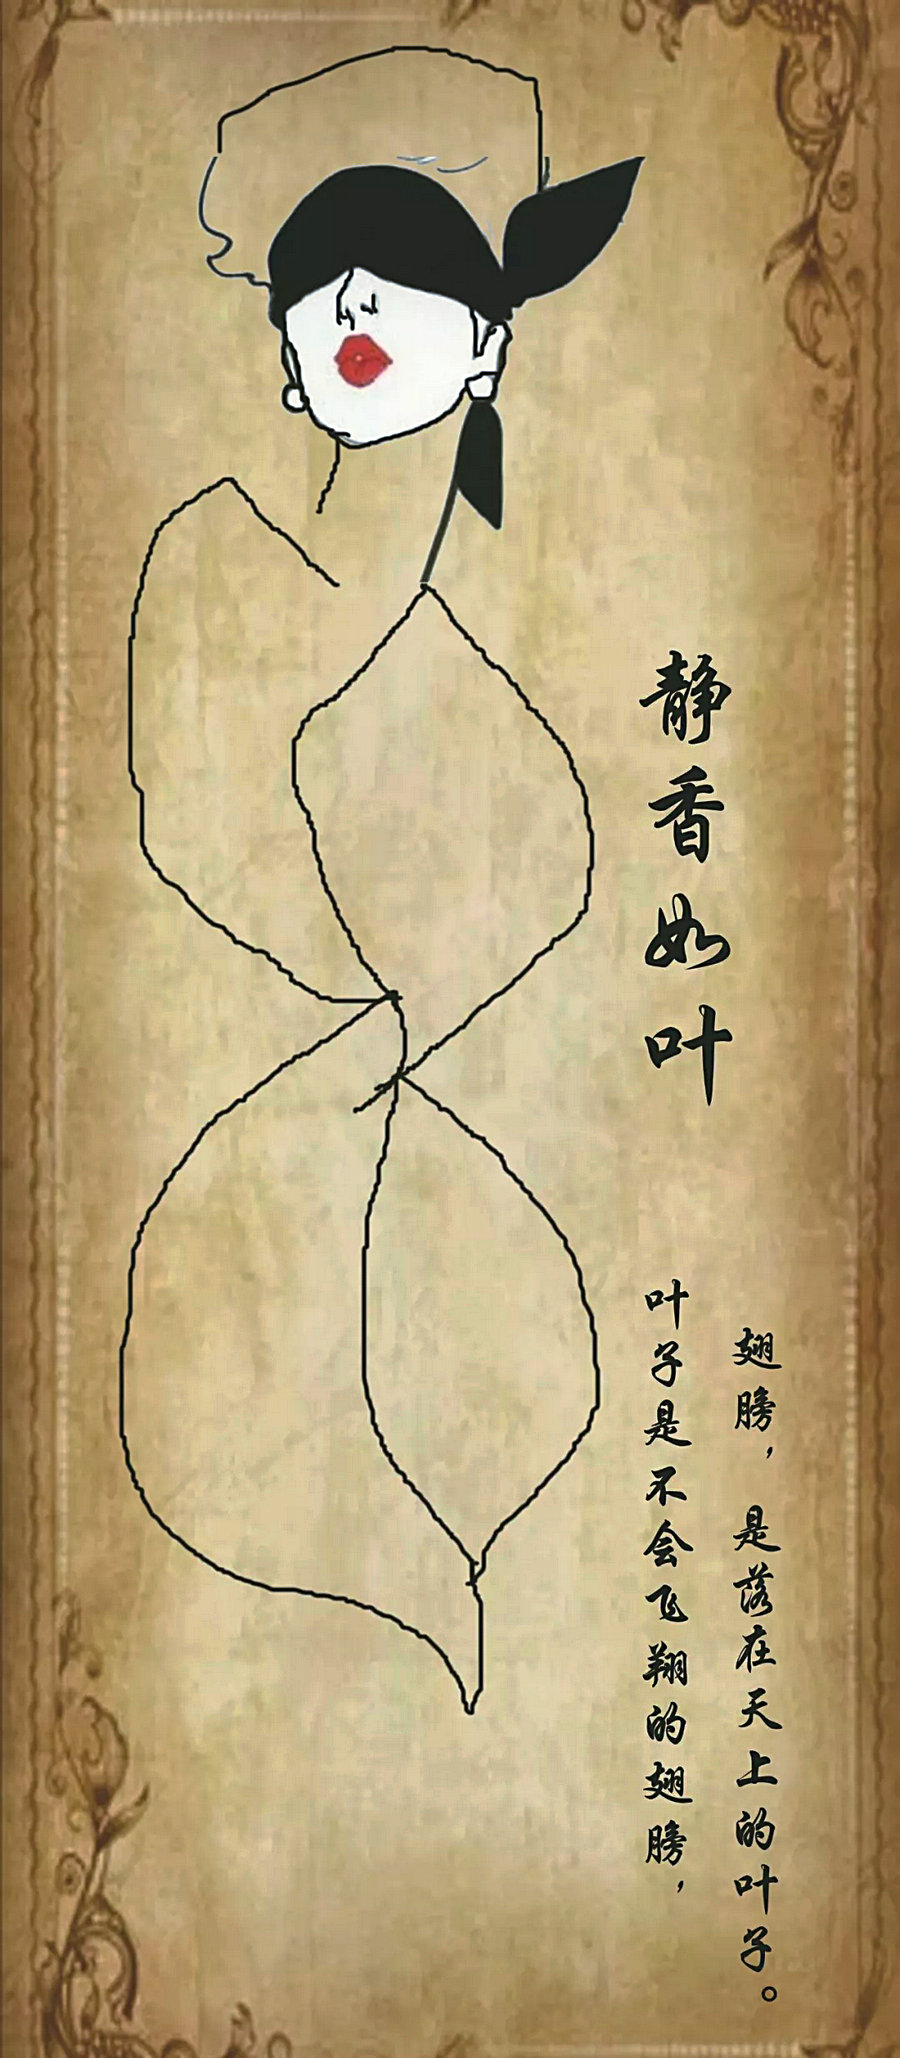 静香如叶
叶子是不会飞翔的翅膀，
翅膀，是落在天上的叶子。